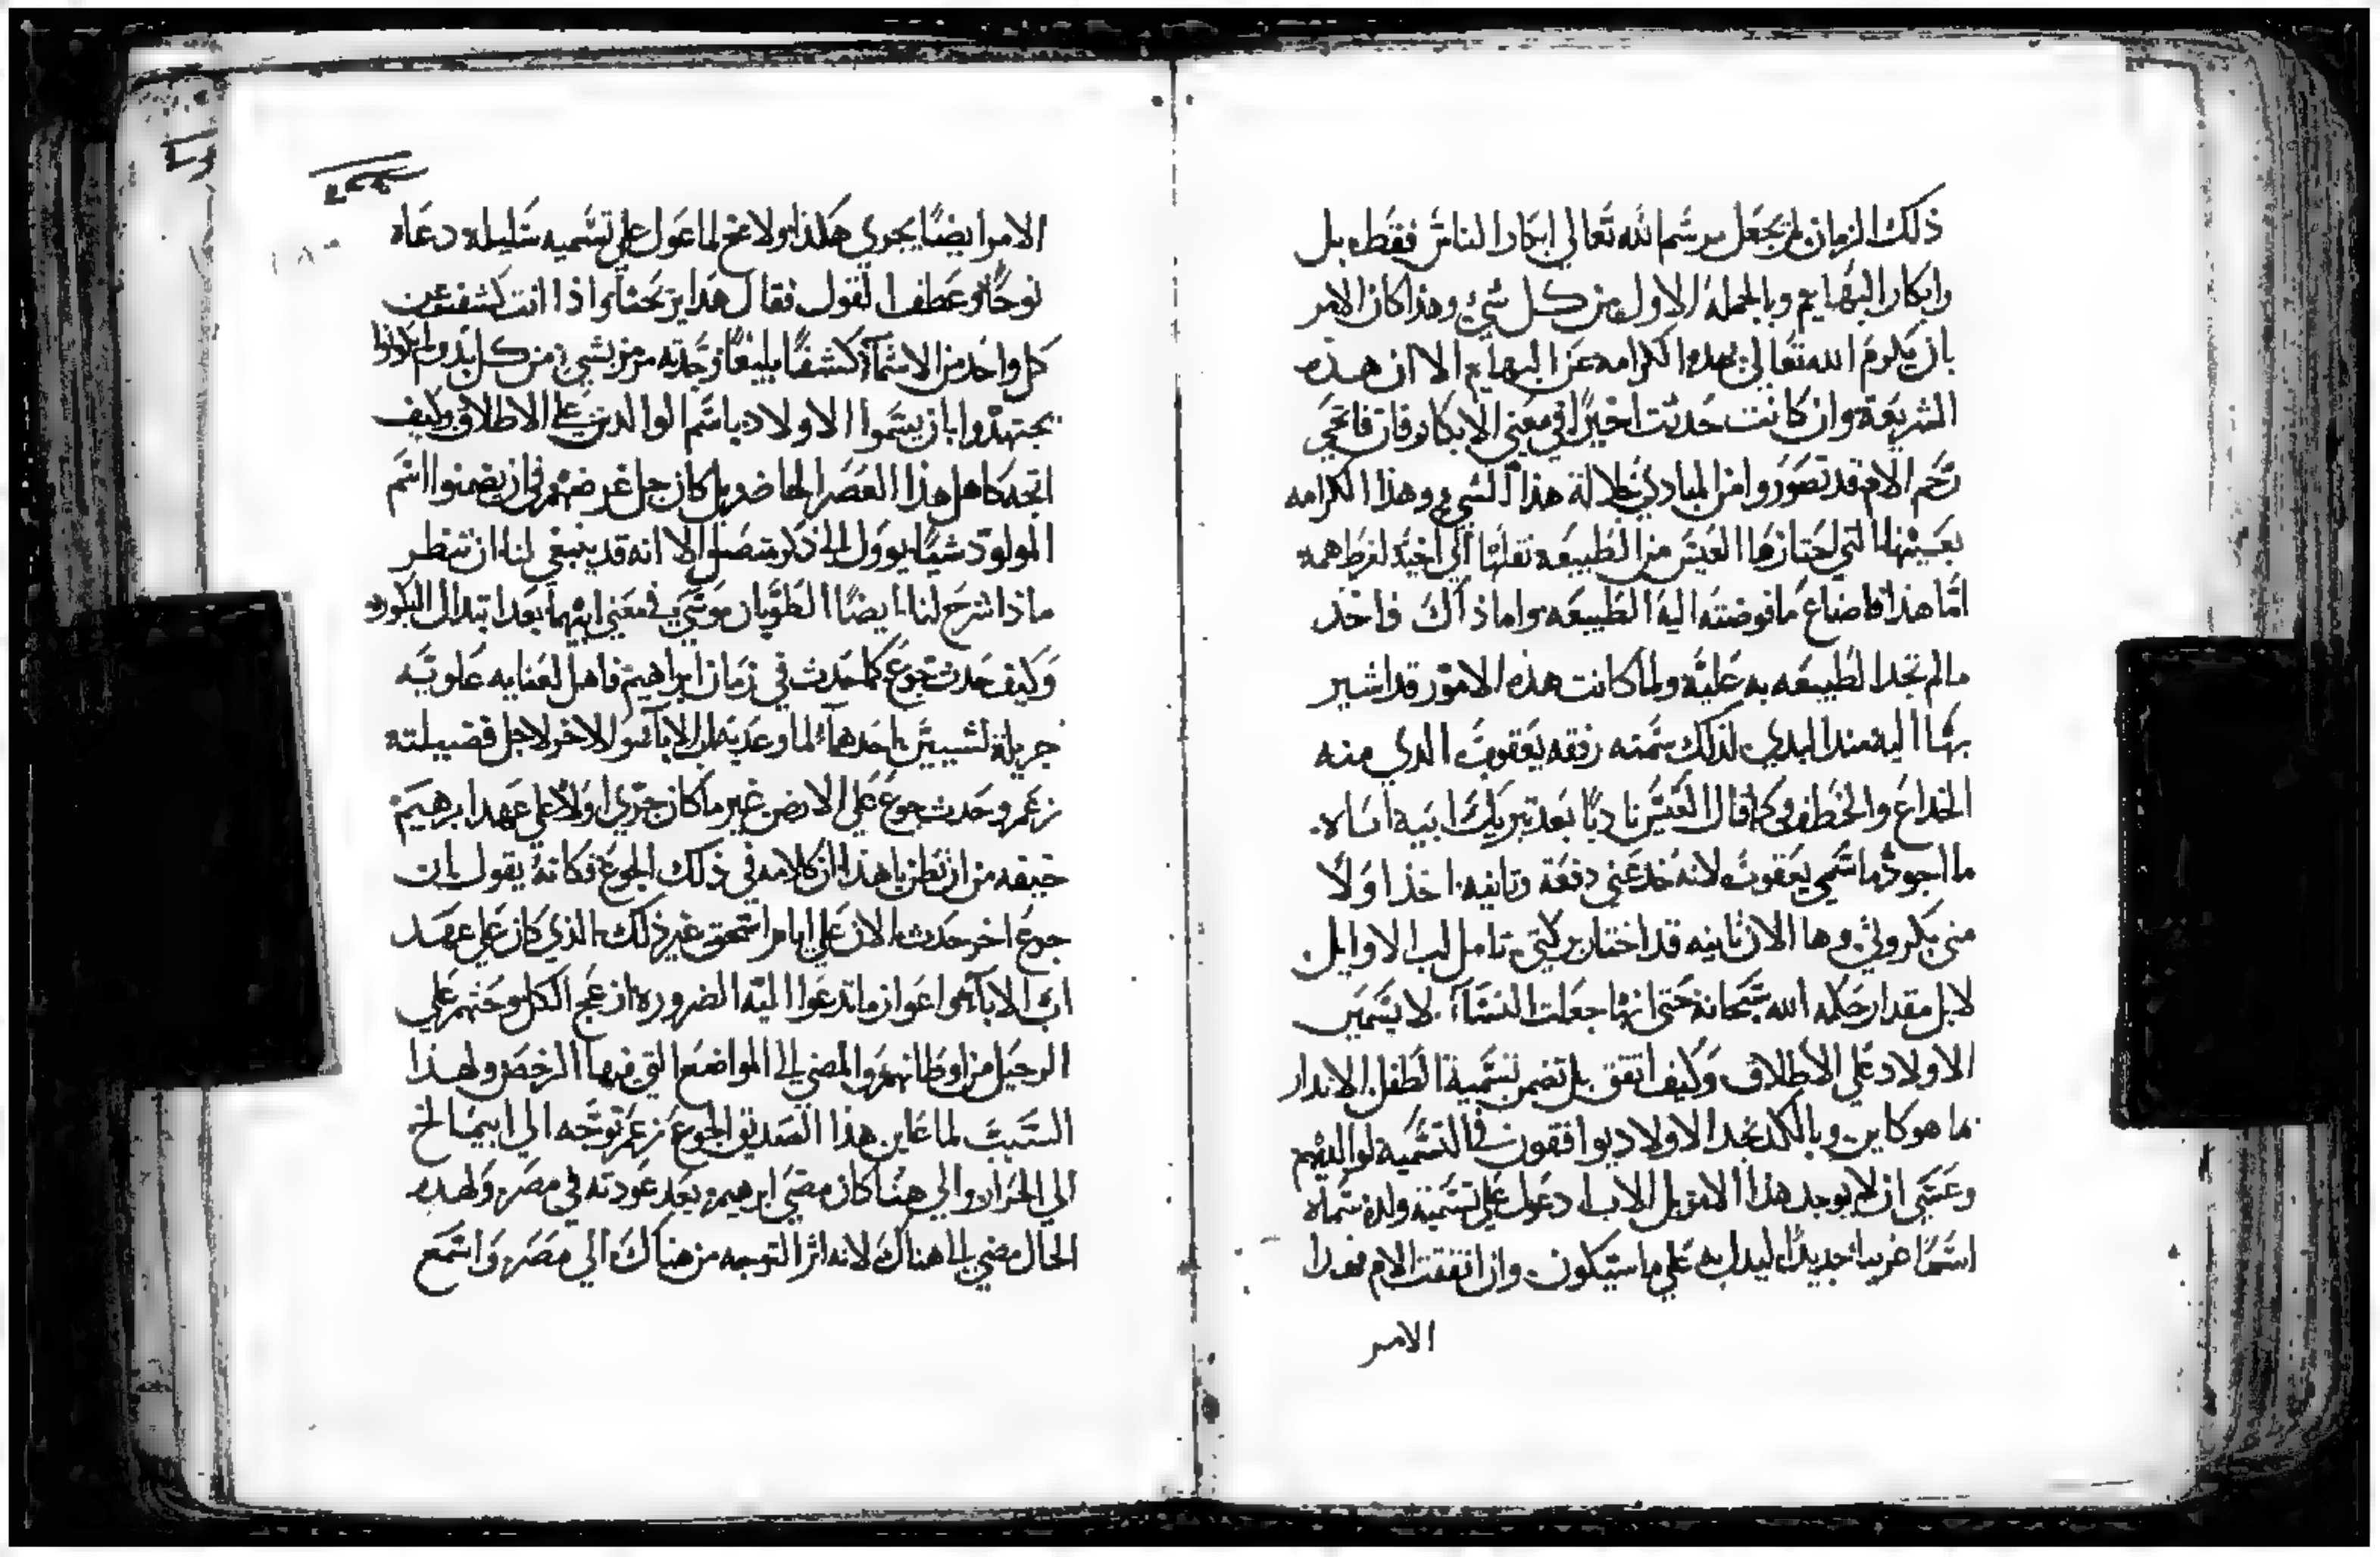 ذلك الزمان لم يجعل برسم الله تعالي ابكار الناس فقط بل
وابكار البهايم وبالجملة الاول من كل شي وهذا كان الامر
بان يكرم الله تعالي بهذه الكرامه عن البهايم الا ان هذه
الشريعة وان كانت حدثت اخيرًا في معني الابكار فان فاتحي
رحم الام قد تصوروا من المبادي بجلالة هذا الشي وهذا الكرامه
بعينها التي احتازها العيس من الطبيعه نقلها الي اخيه لفرط همه
امّا هذا فاضاع ما فوضته اليه الطبيعه واما ذاك فاخذ
مالم تجد الطبيعه به عليه ولما كانت هذه الامور قد اشير
بها اليه منذ البدي لذلك سمته رفقه يعقوب الذي منه
الخداع والخطف كما قال العيس نادبًا بعد تبريك ابيه اياه
ما اجود ما سمي يعقوب لانه خدعني دفعة وثانيه اخذ اولًا
مني بكروتي وها الان ثانيه قد اختار بركتي تامل لب الاوايل
لا بل مقدار حكمه الله سبحانه حتي انها جعلت النسآء لا يسمين
الاولاد علي الاطلاق وكيف اتفق بل تضمن تسمية الطفل الاندار
بما هو كاين وبالكد تجد الاولاد يوافقون في التسميه لوالديهم
وعسي ان لم يوجد هذا الامر بل الاب اذ عول علي تسمية ولده سماه
اسمًا غريبا جديدًا ليدل به علي ما سيكون وان اتفقت الام فهذا
الامر
الامر ايضًا يجري هكذا ولامخ لما عول علي تسميه سليله دعاه
نوحًا وعطف القول فقال هذا يريحنا واذا انت كشفت عن
كل واحد من الاسمآء كشفًا بليغًا وجدته مرمز بشي من كل بد ولم يكونوا
يجتهدوا بان يسموا الاولاد باسم الوالدين علي الاطلاق وكيف
اتجه كاهل هذا العصر الحاضر بل كان جل غرضهم في ان يضمنوا اسم
المولود شيًا يوول الي ذكر متصل الا انه قد ينبغي لنا ان ننظر
ماذا شرح لنا ايضًا الطوبان موسي في معني ابنهما بعد ابتدال البكوره
وكيف حدث جوع كما حدث في زمان ابراهيم فاهل لعنايه علويه
جزيلة لشييين احدهما لما وعد به اب الابآء والاخر لاجل فضيلته
زعم وحدث جوع علي الارض غير ما كان جري اولًا علي عهد ابرهيم
خيفه من ان تظن يا هذا ان كلامه في ذلك الجوع فكانه يقول ان
جوع اخر حدث الان علي ايام اسحق غير ذلك الذي كان علي عهد
اب الابآء واعواز ما تدعوا اليه الضروره ازعج الكل وحثهم علي
الرحيل من اوطانهم والمضي الي المواضع التي فيها الرخص ولهذا
السبب لما عاين هذا الصديق الجوع زعم توجه الي ابيمالخ
الي الخرار والي هنا كان مضي ابرهيم بعد عودته في مصر ولهذه
الحال مضي الي هناك لانه اثر التوجه من هناك الي مصر واسمع